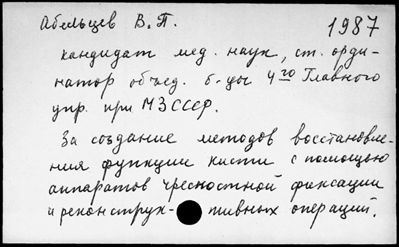 Абельцев В. П. 1987
кандидат мед. наук, ст. орди-
натор объед. б-цы 4го Главного
упр. при МЗ СССР.
За создание методов восстановле-
ния функции кисти с помощью
аппаратов чрескостной фиксации
и реконструк- тивных операций.